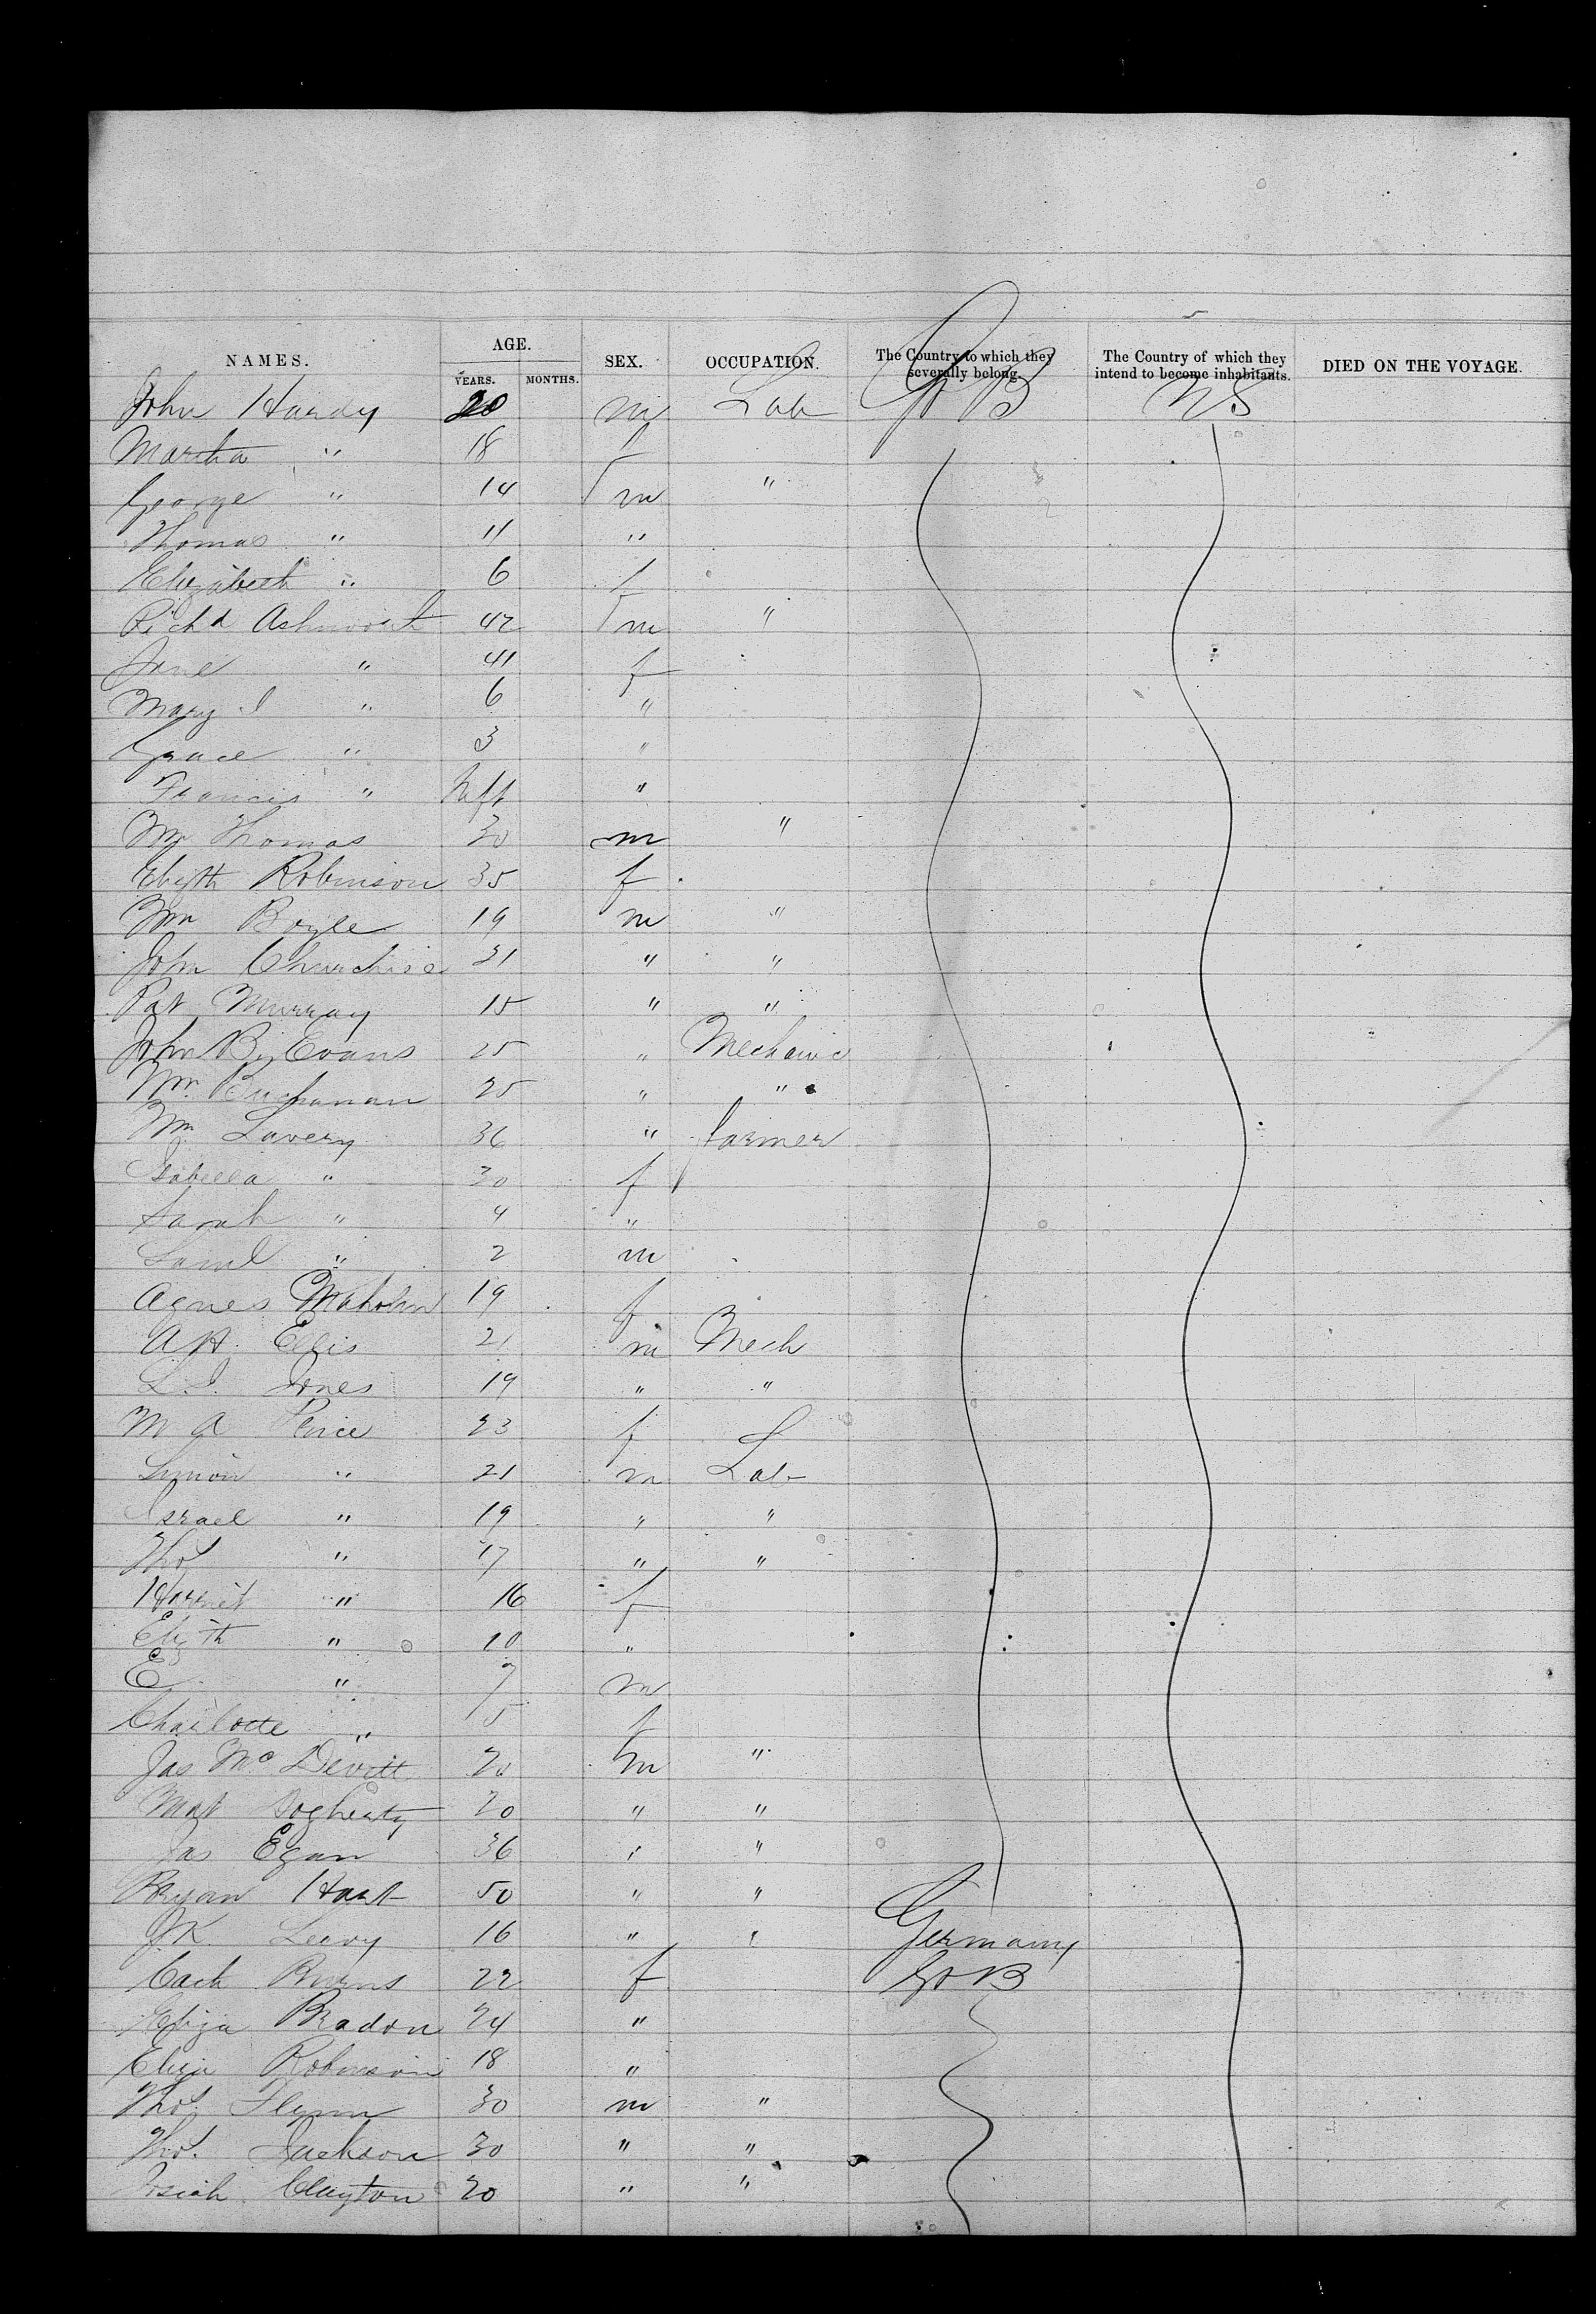 NAMES. AGE. YEARS. MONTHS. SEX. OCCUPATION. The Country to which they severally belong. The Country of which they intend to become inhabitants. DIED ON THE VOYAGE.
John Hardy 20 m Lab Gt B US
Martha " 18 f
George " 14 m "
Thomas " 11 "
Elizabeth " 6 f
Richd Ashworth 42 m "
Jane " 41 f
Mary J " 6 "
Grace " 3 "
Francis " Inft "
Wm Thomas 30 m "
Elizth Robinson 35 f
Wm Boyle 19 m "
John 31 " "
Pat Murray 15 " "
John By Evans 25 " Mechanic
Wm Buchanan 25 " "
Wm Lavery 36 " farmer
Isabella " 30 f
Sarah " 4 "
Saml " 2 m
Agnes 19 f
A H Ellis 21 m Mech
L. J. Jones 19 " "
M A Price 23 f
Simon " 21 m Lab
Israel " 19 " "
Thos " 17 " "
Harriet " 16 f
Elizth " 10 "
E " 7 m
Charlotte " 5 f
Jas Mc Devitt 20 m "
Mat Dogherty 20 " "
Jas Egan 36 " "
Bryan Hart 50 " "
J K Leavy 16 " " Germany
Cath Burns 22 f Gt B
Eliza Bradon 24 "
Eliza Robinson 18 "
Thos Flynn 30 m "
Thos. Jackson 30 " "
Josiah Clayton 20 " "